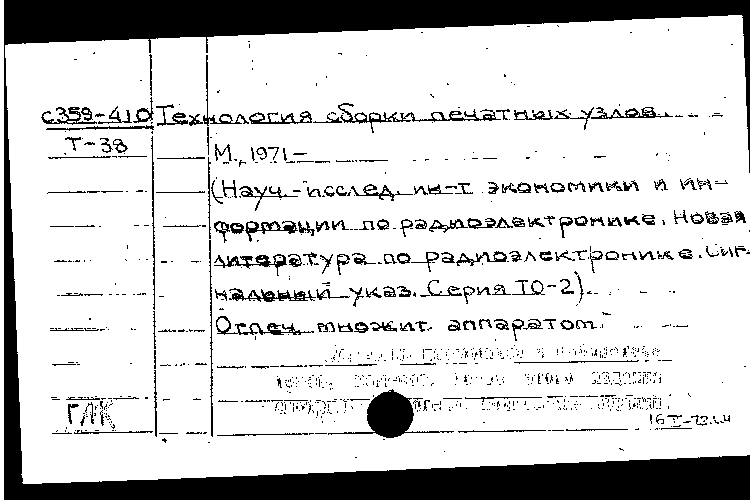 с359-410 Технология сборки печатных узлов.
Т-38 М., 1971-
(Науч.-исслед. ин-т экономики и ин-
формации по радиоэлектронике. Новая
литература по радиоэлектронике. Сиг-
нальный указ. Серия ТО-2).
Отпеч. множит. аппаратом.
ГЛК